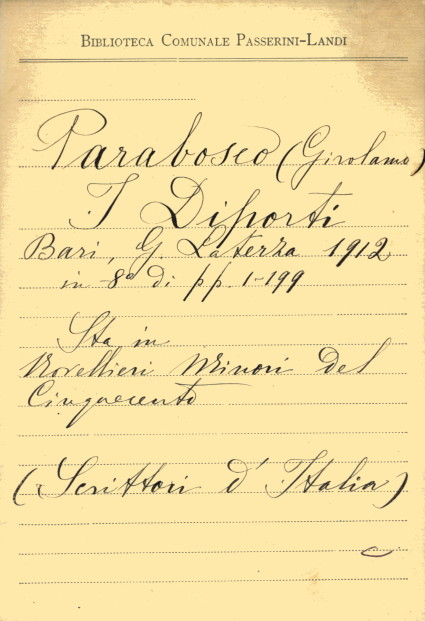 BIBLIOTECA COMUNALE PASSERINI-LANDI
Parabosco (Girolamo)
I Diporti
Bari, G. Laterza 1912
in 8º di pp. 1-199
Sta in
Novellieri Minori del
Cinquecento
(Scrittori d'Italia)